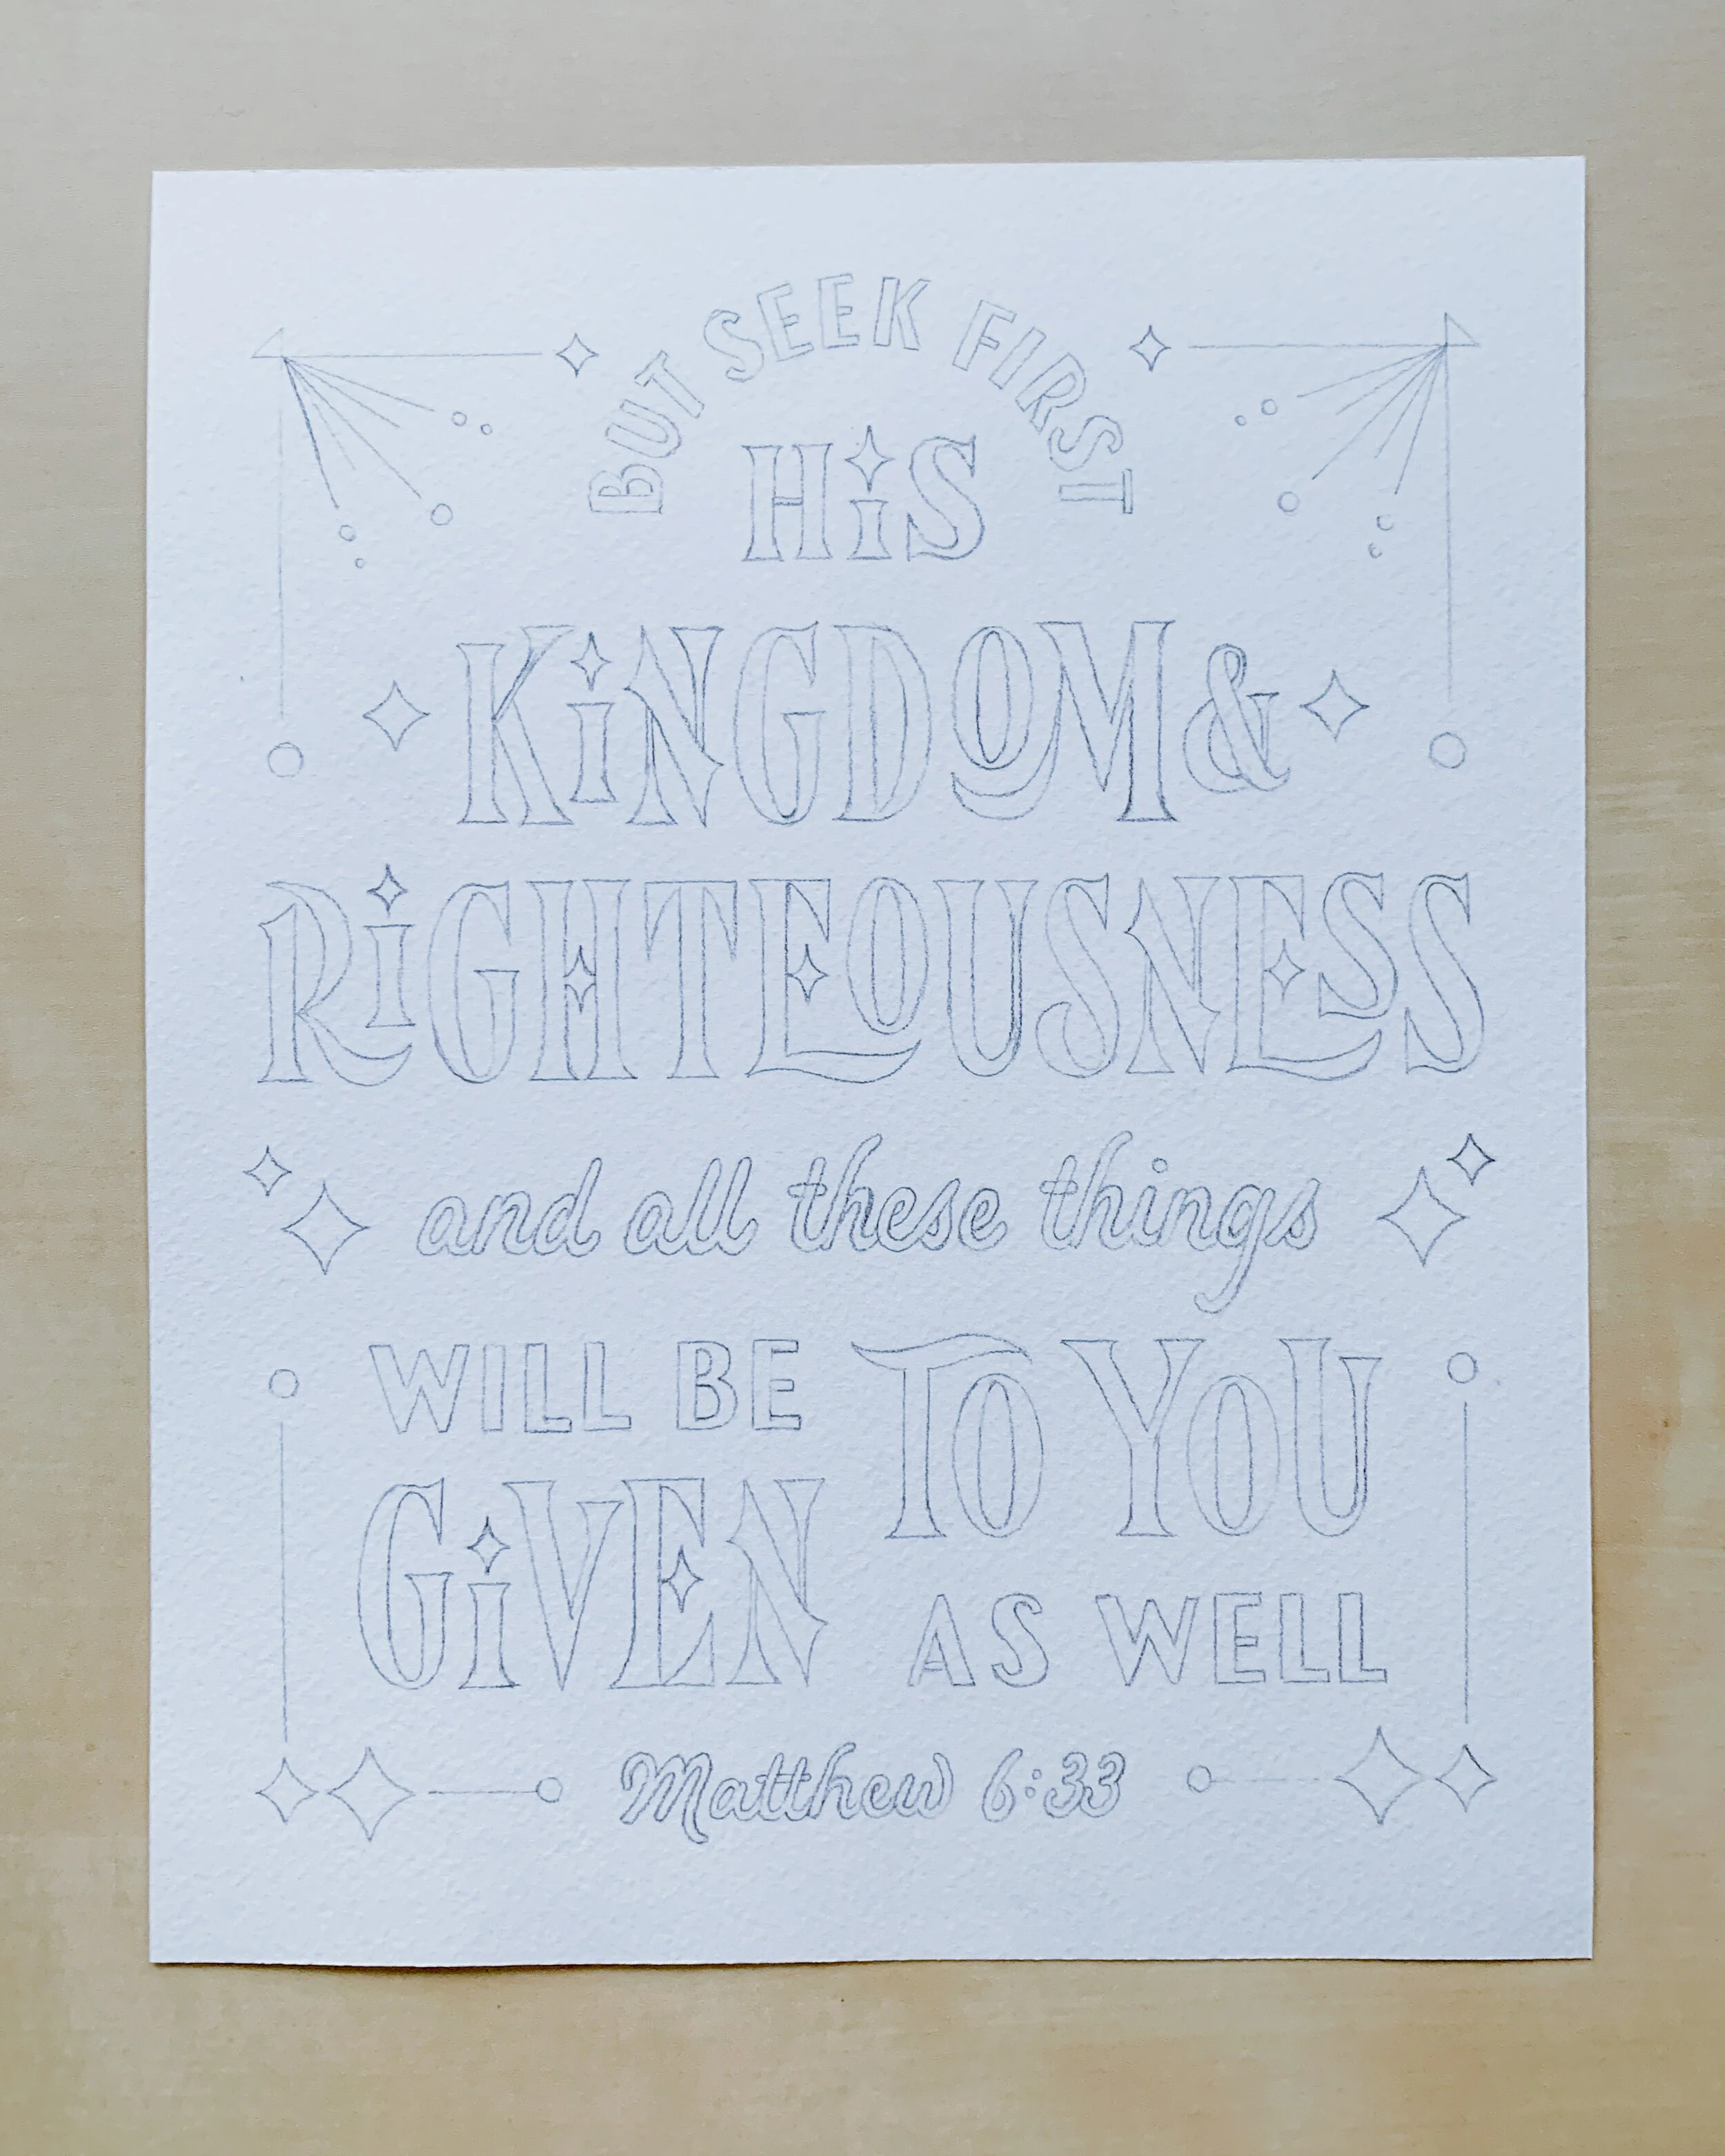 BUT SEEK FIRST
HiS
KiNGDOM &
RiGHTEOUSNESS
and all these things
WILL BE
GiVEN
TO YOU
AS WELL
Matthew 6:33